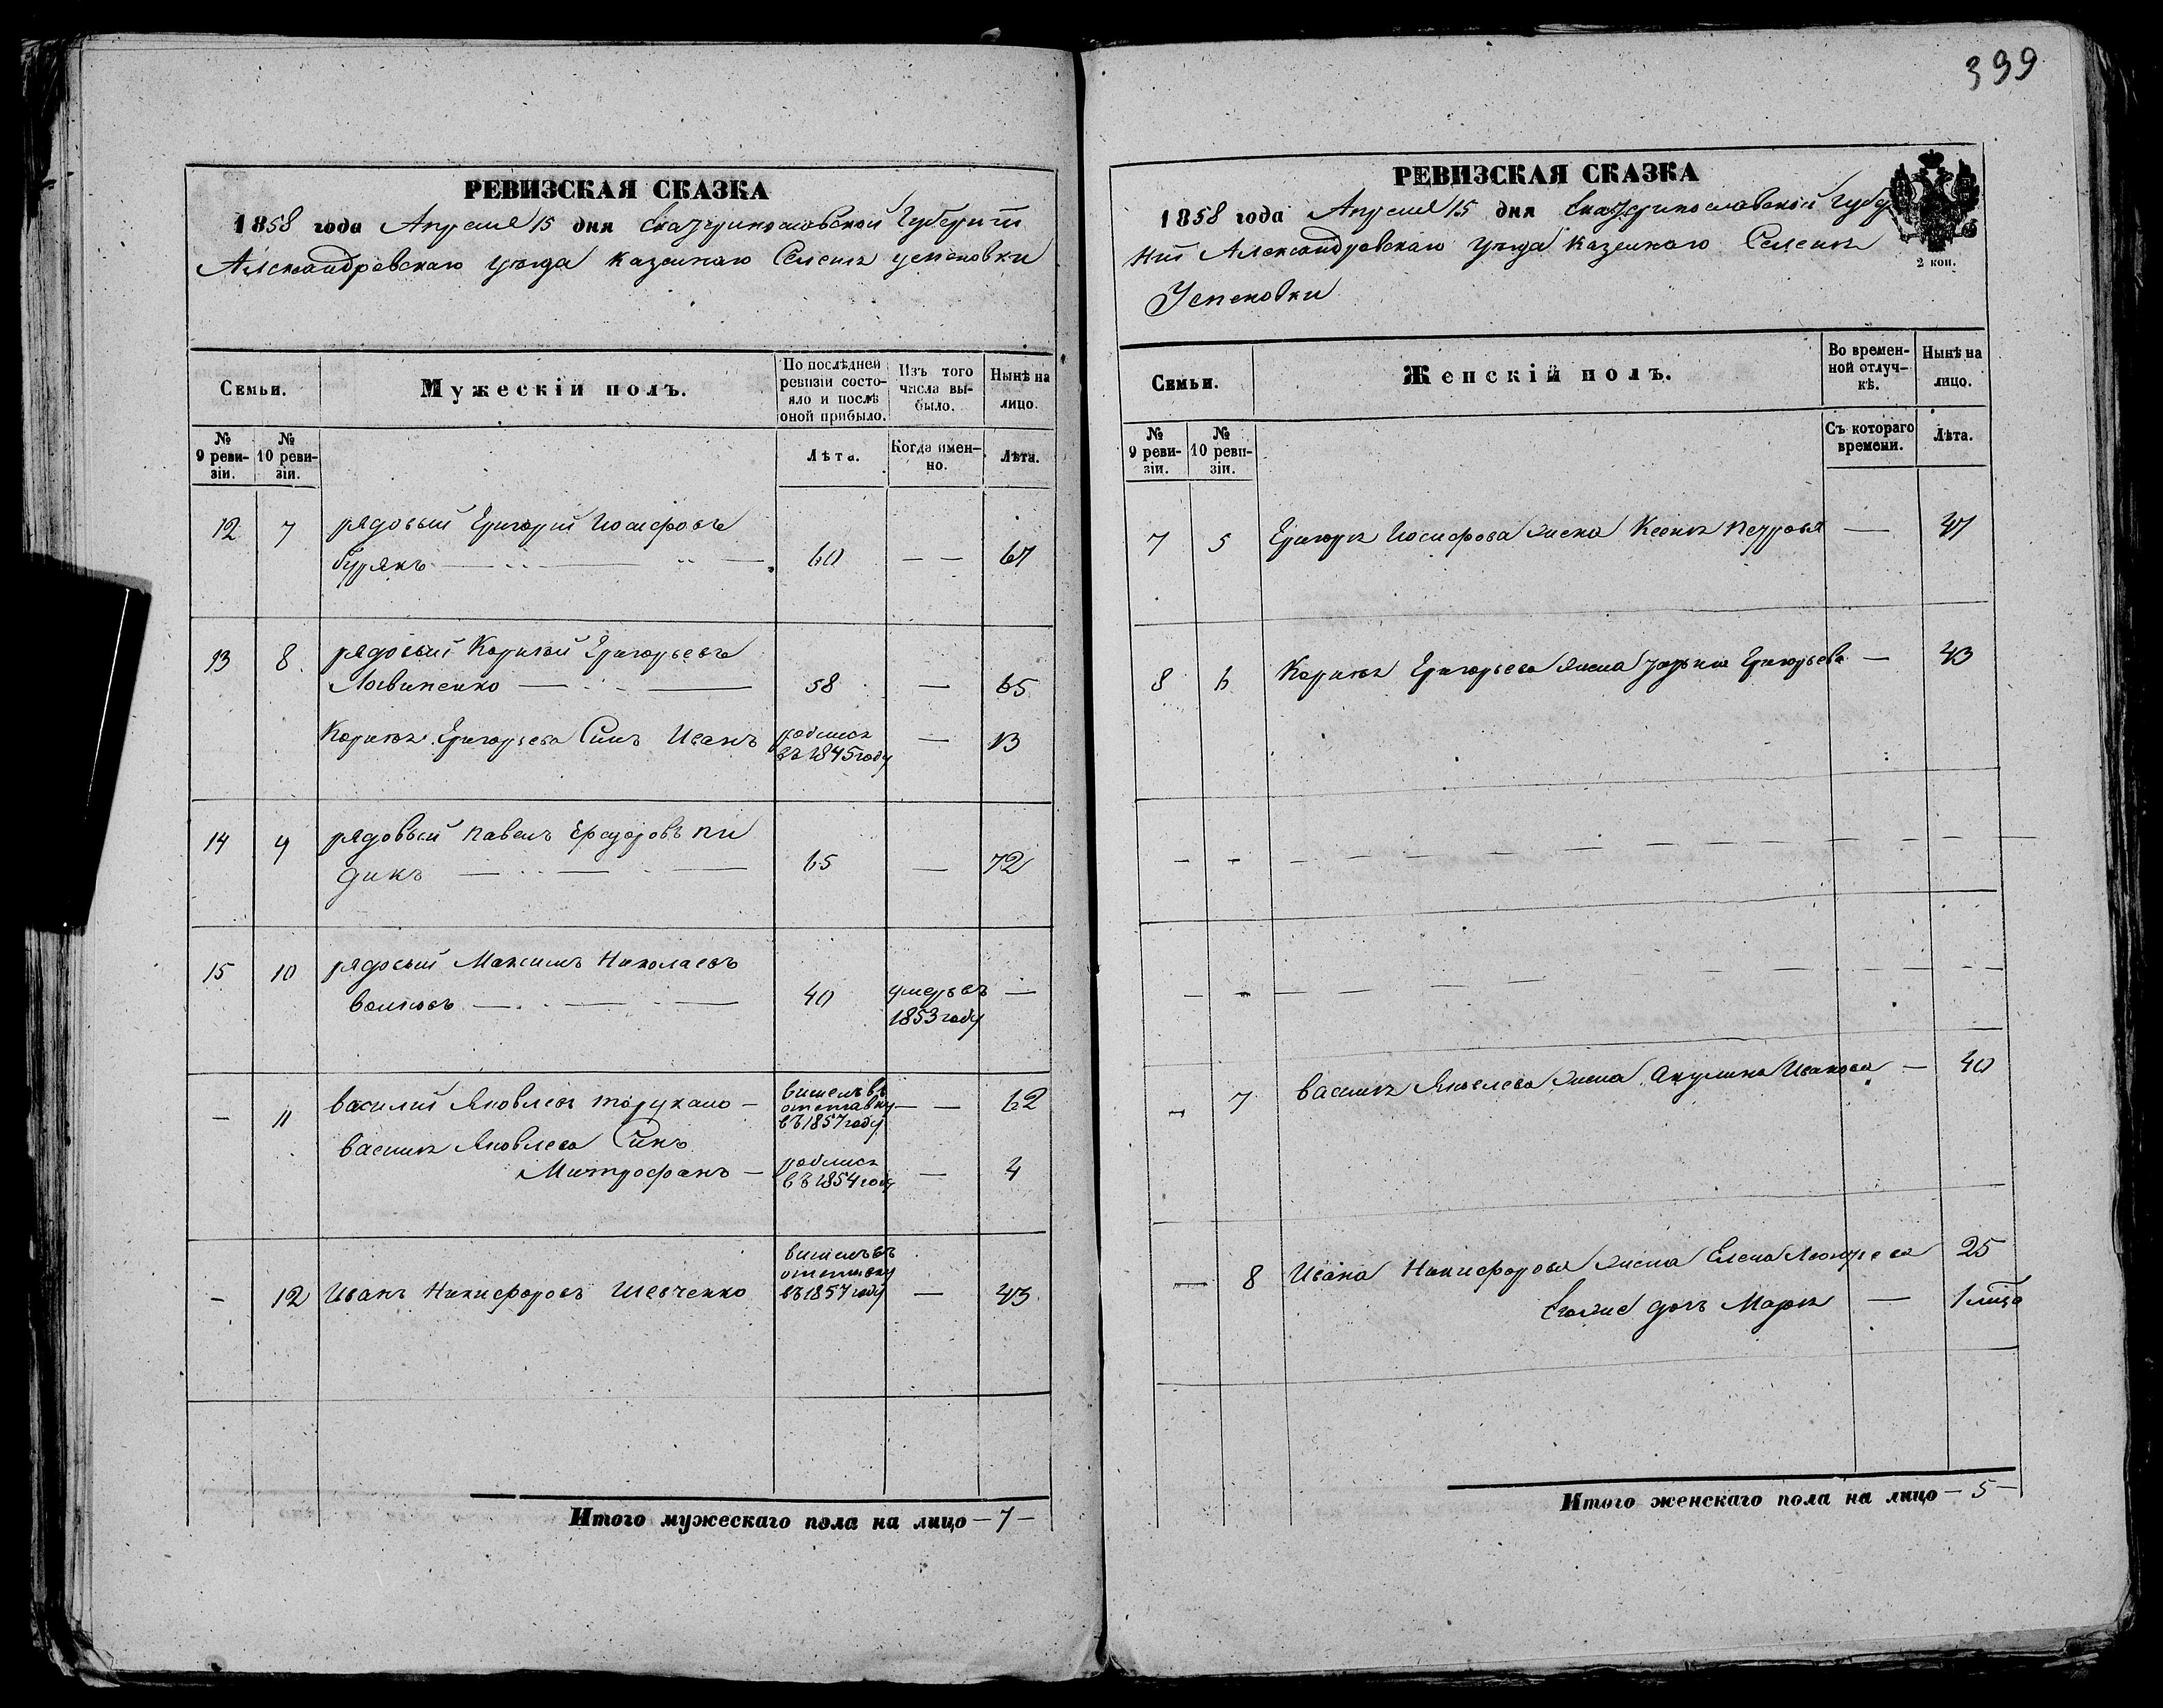 399
РЕВИЗСКАЯ СКАЗКА
1858 года Апреля 15 дня Екатеринославской Губернии
Александровскаго уезда казеннаго Селения успеновки
Семьи.
Мужескій полъ.
По послѣдней ревизіи состояло и послѣ оной прибыло.
Изъ того числа выбыло.
Нынѣ на лицо.
№ 9 ревизіи.
№ 10 ревизіи.
Лѣта.
Когда именно.
Лѣта.
12 7 рядовый Григорий Иосифовъ
бурякъ 60 — — 67
13 8 рядовый Корнѣй Григорьевъ
Литвиненко 58 — 65
Корнѣя Григорьева Синъ Иванъ родился въ 1845 году — 13
14 9 рядовый павелъ Ефедоровъ пи
дикъ 65 — 72
15 10 рядовый Максимъ Николаевъ
волковъ 40 умеръ въ 1853 году —
— 11 василий Яковлевъ — вишелъ въ отставку въ 1857 году — — 62
василя Яковлева Синъ
Митрофанъ — родился въ 1854 году — 4
— 12 Иванъ Никифоровъ Шевченко вишелъ въ отставку въ 1857 году — 43
Итого мужескаго пола на лицо — 7 —
РЕВИЗСКАЯ СКАЗКА
1858 года Апреля 15 дня Екатеринославской Губер
нии Александровскаго уезда казеннаго Селения
Успеновки
2 коп.
Семьи.
Женскій полъ.
Во временной отлучкѣ.
Нынѣ на лицо.
№ 9 ревизіи.
№ 10 ревизіи.
Съ котораго времени.
Лѣта.
7 5 Григоря Иосифова жена Ксения петрова — 47
8 6 Корнѣя Григорьева жена Григорьева — 43
— 7 василя Яковлева жена Акулина Иванова — 40
— 8 Ивана Никифорова жена Елена 25
Егоже дочь Мария — 1
Итого женскаго пола на лицо — 5 —